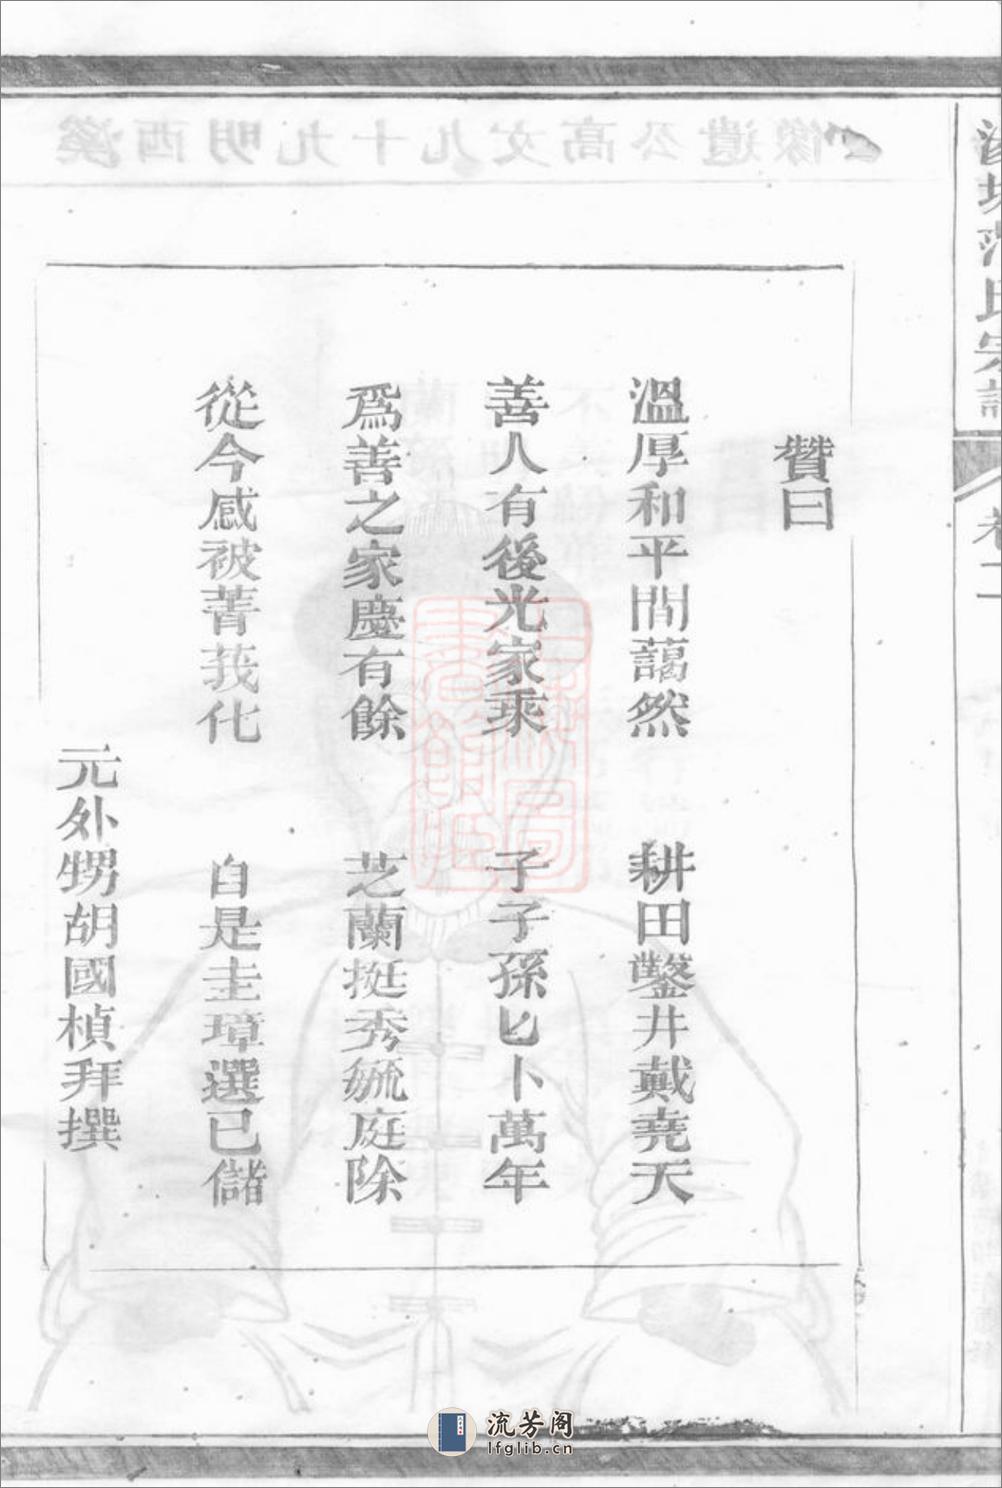 贊曰
溫厚和平間藹然　耕田鑿井戴堯天
善人有後光家乘　子子孫孫匕卜萬年
爲善之家慶有餘　芝蘭挺秀毓庭除
從今感被菁莪化　自是圭璋選已儲
元外甥胡國楨拜撰
氏宗譜
卷二
流芳阁
lfglib.cn